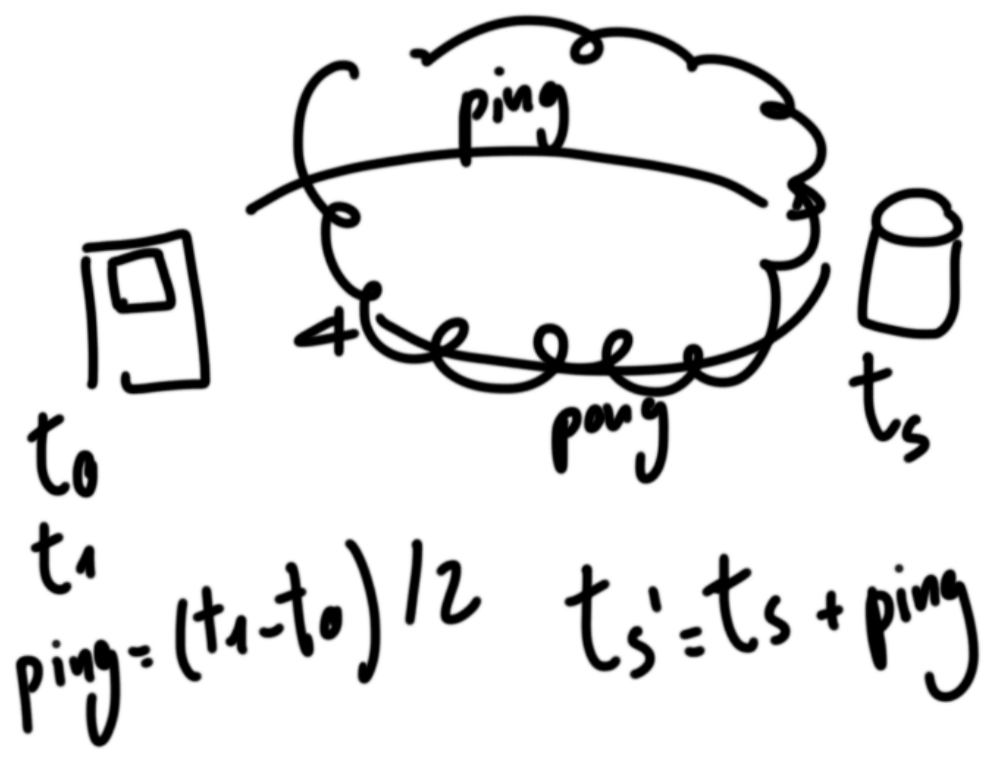 ping
pong
t0
t1
ts
ping = (t1 - t0) / 2
ts' = ts + ping